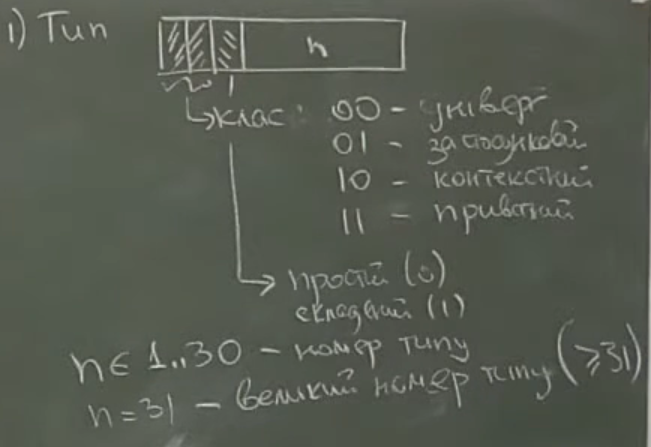 1) Тип
n
клас: 00 - універ
01 - застосунковий
10 - контекстний
11 - приватний
простий (0)
складений (1)
n ∈ 1..30 - номер типу
n = 31 - великий номер типу (≥31)